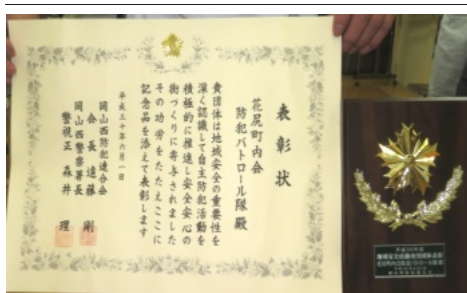 表彰状
花尻町内会
防犯パトロール隊 殿
貴団体は地域安全の重要性を
深く認識して自主防犯活動を
積極的に推進し安全安心の
街づくりに寄与されました
その功労をたたえここに
記念品を添えて表彰します
平成三十年六月一日
岡山西防犯連合会
会長 遠藤 剛
岡山西警察署長
警視正 森井 理
平成30年度